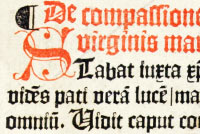 ¶ De compassione
virginis mar
STabat iuxta xp̄
vidēs pati verā lucē/ma
omniū. Vidit caput co